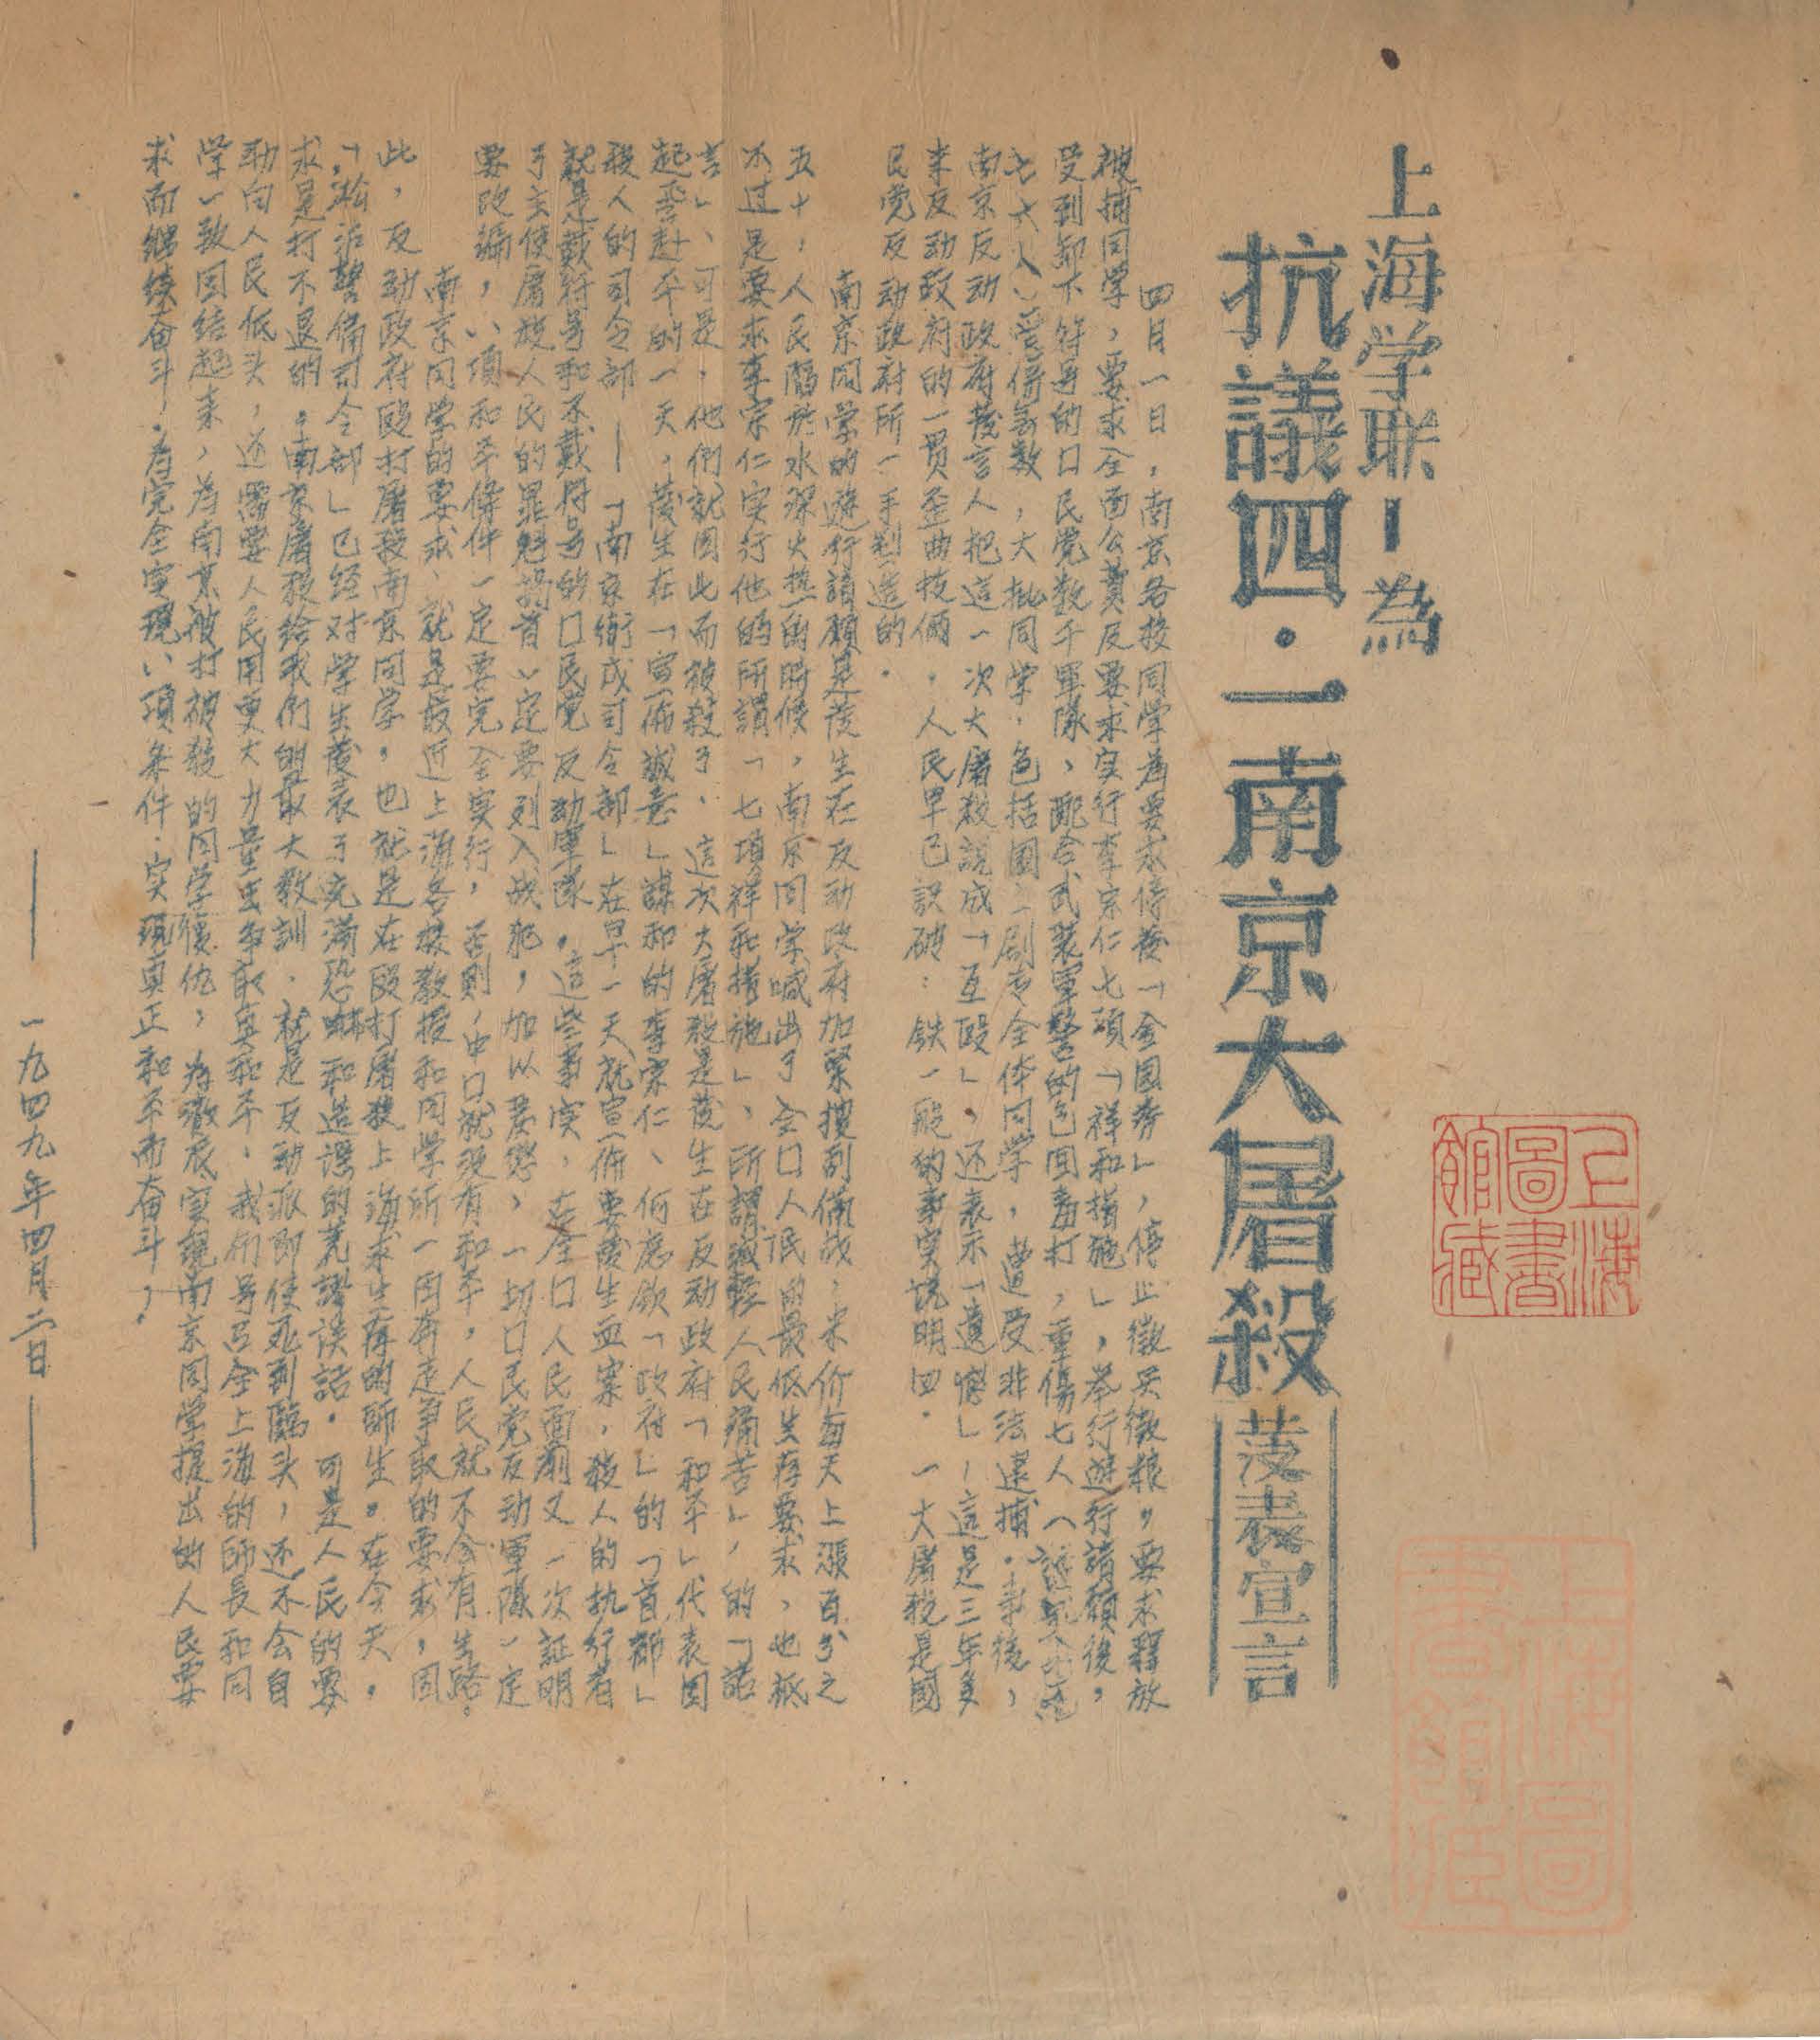 上海学联-為
抗議四·一南京大屠殺
发表宣言
四月一日，南京各校同学為要求停发「金圆券」，停止徵兵徵粮。要求释放
被捕同学，要求全面公費及要求实行李宗仁七項「祥和措施」，举行遊行請願後，
受到卸下符号的口民党数千軍隊，配合武装軍警的包囲毒打，重傷七人
大人）受傷無数，大批同学，包括國立剧专全体同学，遭受非法逮捕。事後，
南京反动政府发言人把這一次大屠殺説成「互毆」，还表示「遺憾」-這是三年多
来反动政府的一贯歪曲技倆。人民早已識破：铁一般的事实说明四．一大屠殺是國
民党反动政府所一手制造的．
南京同学的遊行請願是发生在反动政府加緊搜刮備战；米价每天上漲百分之
五十；人民陷於水深火热的時候，南京同学喊出了全口人民的最低生存要求，也祗
不过是要求李宗仁实行他的所謂「七項祥和措施」、所謂减輕人民痛苦」，的「諾
言」、可是，他們就因此而被殺了、這次大屠殺是发生在反动政府「和平」代表团
起飞赴平的一天，发生在「宣佈誠意」謀和的李宗仁、何应欽「政府」的「首都」
殺人的司令部—「南京衛戍司令部」在早一天就宣佈要发生血案，殺人的执行者
就是戴符号和不戴符号的口民党反动軍隊。這些事实，在全口人民面前又一次証明
了主使屠殺人民的罪魁禍首必定要列入战犯，加以严懲，一切口民党反动軍隊一定
要改编，八項和平條件一定要完全实行，否則，中口就没有和平，人民就不会有生路。
南京同学的要求、就是最近上海各校教授和同学所一同奔走争取的要求，因
此，反动政府毆打屠殺南京同学，也就是在毆打屠殺上海求生存的師生。在今天，
「淞沪警備司令部」已经对学生发表了充滿恐嚇和造謡的荒謬談話。可是人民的要
求是打不退的。南京屠殺給我们的最大教訓．就是反动派即使死到臨头，还不会自
动向人民低头，还需要人民用更大力量去争取真和平．我们号召全上海的師長和同
学一致团结起来，為南京被打被殺的同学復仇，為徹底实现南京同学提出的人民要
求而继续奋斗．為完全实现八項条件．实现真正和平而奋斗，．
一九四九年四月二日
上海圖書館藏
上海圖書館藏